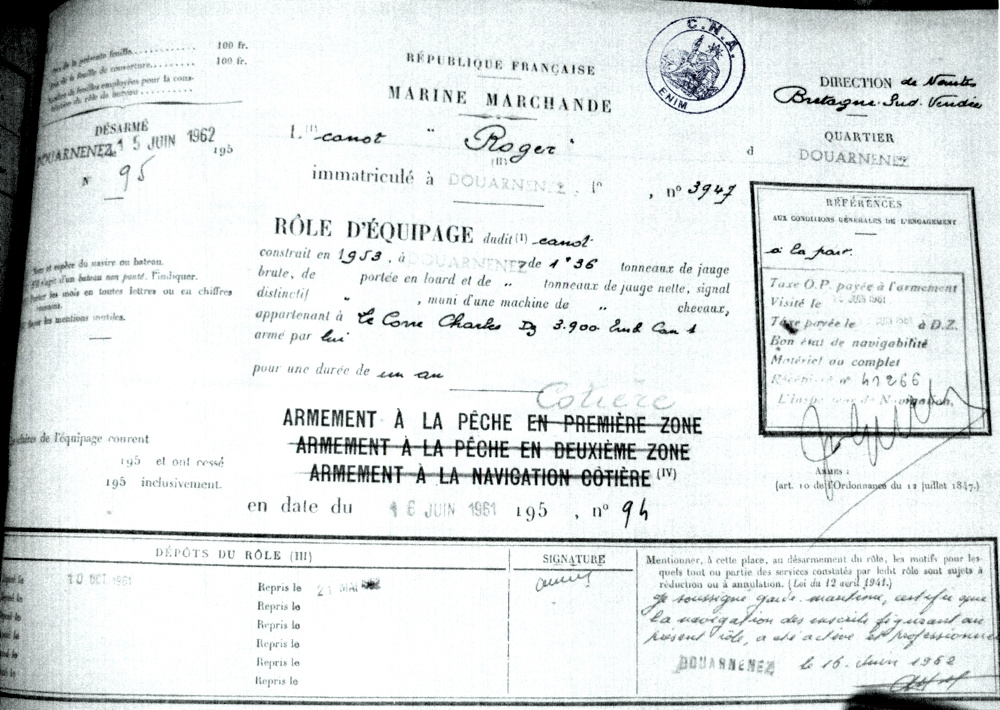 de la présente feuille 100 fr.
de la feuille de couverture 100 fr.
de feuilles employées pour la cons-
du rôle de bureau
DÉSARMÉ
DOUARNENEZ, 15 JUIN 1962 195
N° 95
RÉPUBLIQUE FRANÇAISE
MARINE MARCHANDE
C.N.A.
ENIM
DIRECTION de Nantes
Bretagne-Sud. Vendée
QUARTIER
d DOUARNENEZ
L (I) canot " Roger "
(II)
immatriculé à DOUARNENEZ, n° 3947
RÔLE D'ÉQUIPAGE dudit (I) canot
construit en 1953, à DOUARNENEZ de 1°36 tonneaux de jauge
brute, de portée en lourd et de " tonneaux de jauge nette, signal
distinctif " , muni d'une machine de " chevaux,
appartenant à Le Corre Charles Dz 3.900
armé par lui
pour une durée de un an
et espèce du navire ou bateau.
d'un bateau non ponté, l'indiquer.
les mois en toutes lettres ou en chiffres
les mentions inutiles.
RÉFÉRENCES
AUX CONDITIONS GÉNÉRALES DE L'ENGAGEMENT
à la part.
Taxe O.P. payée à l'armement
Visité le JUIN 1961
Taxe payée le JUIN 1961 à D.Z.
Bon état de navigabilité
Matériel au complet
Récépissé n° 41266
L'inspecteur de Navigation.
ARMES :
(art. 10 de l'Ordonnance du 12 juillet 1847.)
Cotière
ARMEMENT À LA PÊCHE EN PREMIÈRE ZONE
ARMEMENT À LA PÊCHE EN DEUXIÈME ZONE
ARMEMENT À LA NAVIGATION CÔTIÈRE (IV)
de l'équipage courent
195 et ont cessé
195 inclusivement.
en date du 16 JUIN 1961 195 , n° 94
DÉPÔTS DU RÔLE (III)
SIGNATURE
le 10 OCT 1961 Repris le 21 MAI
le Repris le
le Repris le
le Repris le
le Repris le
le Repris le
Mentionner, à cette place, au désarmement du rôle, les motifs pour les-
quels tout ou partie des services constatés par ledit rôle sont sujets à
réduction ou à annulation. (Loi du 12 avril 1941.)
Je soussigné garde maritime, certifie que
la navigation des inscrits figurant au
présent rôle, a été active et professionnelle
DOUARNENEZ le 15 Juin 1962